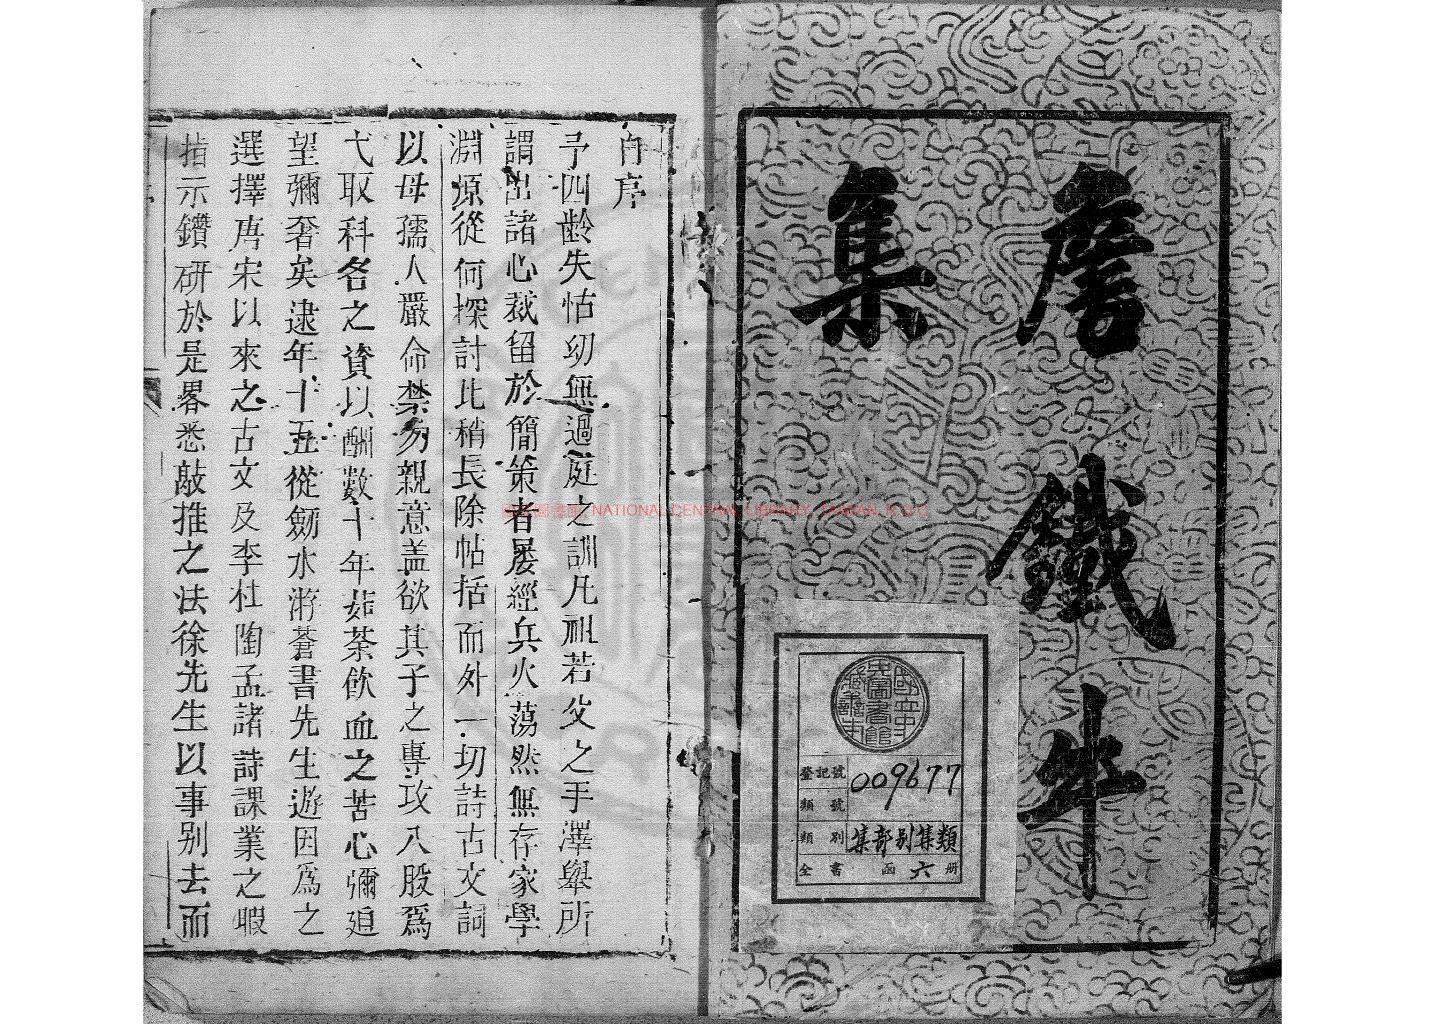 詹鐵牛
集
國立中央圖書館藏善本
登記號 009677
類號
類別 集部別集類
全書 函 六 册
自序
予四齡失怙幼無過庭之訓凡祖若父之手澤舉所
謂出諸心裁留於簡策者屡經兵火蕩然無存家學
淵源從何探討比稍長除帖括而外一切詩古文詞
以母孺人嚴命禁勿親意盖欲其子之專攻八股爲
弋取科名之資以酬数十年茹荼飲血之苦心彌廹
望彌奢矣逮年十五從劒水游蒼書先生遊因爲之
選擇唐宋以來之古文及李杜陶孟諸詩課業之暇
指示鑽研於是畧悉敲推之法徐先生以事别去而
NATIONAL CENTRAL LIBRARY, TAIWAN, R.O.C